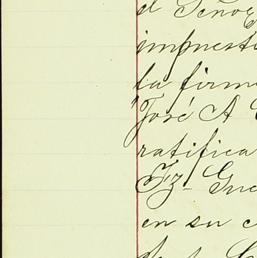 el Señor
impuest
la firm
"José A
ratifica
Fz- Gue
en su c